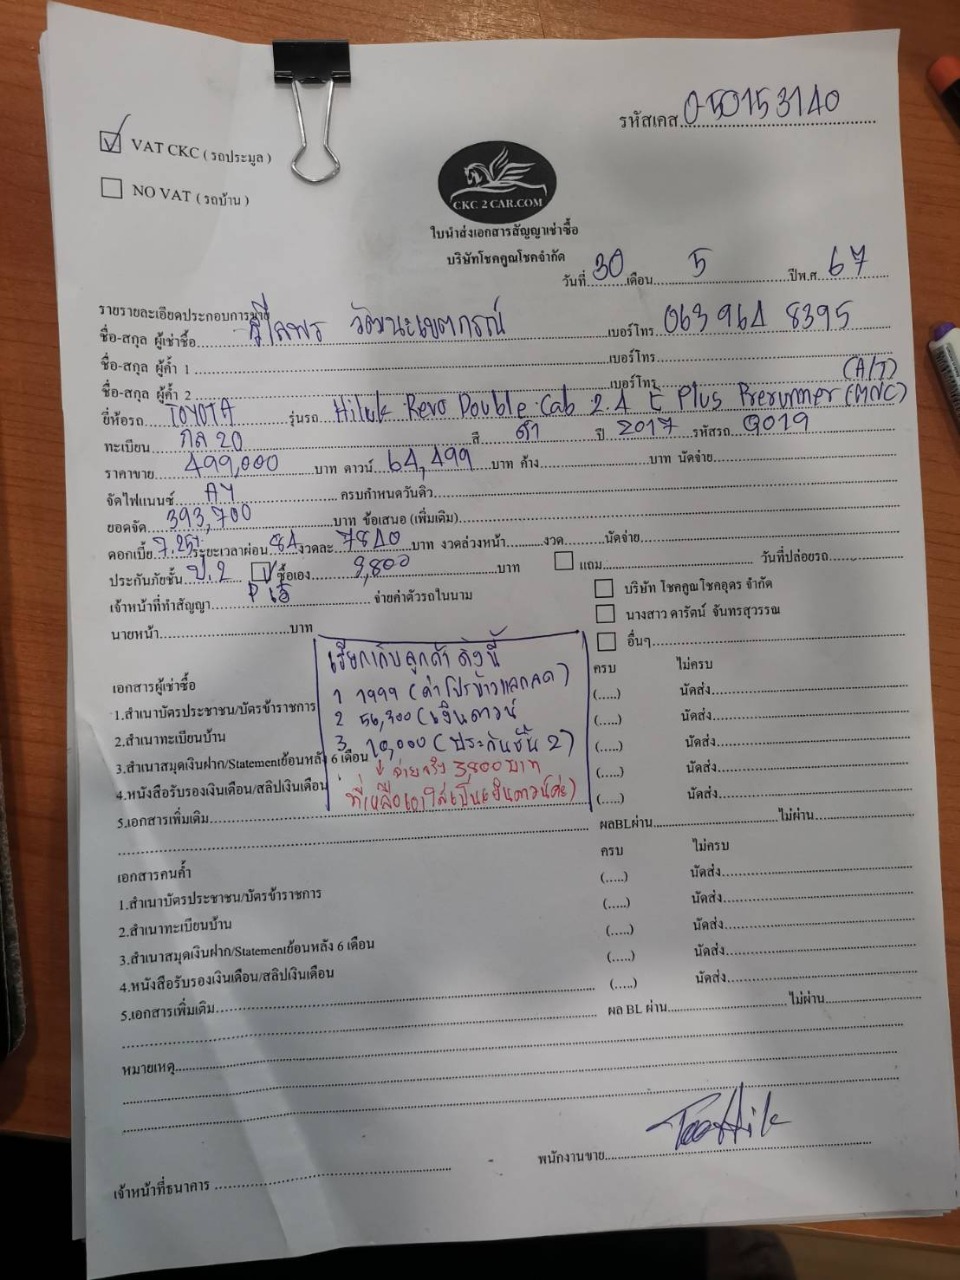 รหัสเคส 050153140
VAT CKC ( รถประมูล )
NO VAT ( รถบ้าน )
CKC 2 CAR.COM
ใบนำส่งเอกสารสัญญาเช่าซื้อ
บริษัทโชคคูณโชคจำกัด
วันที่ 30 เดือน 5 ปีพ.ศ. 67
รายรายละเอียดประกอบการขาย
ชื่อ-สกุล ผู้เช่าซื้อ เบอร์โทร 063 964 8395
ชื่อ-สกุล ผู้ค้ำ 1 เบอร์โทร
ชื่อ-สกุล ผู้ค้ำ 2 เบอร์โทร (A/T)
ยี่ห้อรถ TOYOTA รุ่นรถ Hiluk Revo Double Cab 2.4 E Plus Prerunner (MNC)
ทะเบียน กล 20 สี ดำ ปี 2017 รหัสรถ G019
ราคาขาย 499,000 บาท ดาวน์ 64,499 บาท ค้าง บาท นัดจ่าย
จัดไฟแนนซ์ AY ครบกำหนดวันคิว
ยอดจัด 393,700 บาท ข้อเสนอ (เพิ่มเติม)
ดอกเบี้ย 7.25% ระยะเวลาผ่อน 84 งวดละ 7840 บาท งวดล่วงหน้า งวด นัดจ่าย
ประกันภัยชั้น ป.2 ซื้อเอง 9,800 บาท แถม วันที่ปล่อยรถ
เจ้าหน้าที่ทำสัญญา จ่ายค่าตัวรถในนาม บริษัท โชคคูณโชคอุดร จำกัด
นางสาว ดารัตน์ จันทรสุวรรณ
นายหน้า บาท อื่นๆ
เรียกเก็บลูกค้า ดังนี้
1 1999 (ค่าโปรข้าวแลกลด)
2 56,700 (เงินดาวน์
3 10,000 (ประกันชั้น 2)
จ่ายจริง 3,800 บาท
ที่เหลือเอาใส่เป็นเงินดาวน์ค่ะ)
เอกสารผู้เช่าซื้อ ครบ ไม่ครบ
1.สำเนาบัตรประชาชน/บัตรข้าราชการ (.....) นัดส่ง
2.สำเนาทะเบียนบ้าน (.....) นัดส่ง
3.สำเนาสมุดเงินฝาก/Statementย้อนหลัง 6 เดือน (.....) นัดส่ง
4.หนังสือรับรองเงินเดือน/สลิปเงินเดือน (.....) นัดส่ง
5.เอกสารเพิ่มเติม (.....) นัดส่ง
ผลBLผ่าน ไม่ผ่าน
เอกสารคนค้ำ ครบ ไม่ครบ
1.สำเนาบัตรประชาชน/บัตรข้าราชการ (.....) นัดส่ง
2.สำเนาทะเบียนบ้าน (.....) นัดส่ง
3.สำเนาสมุดเงินฝาก/Statementย้อนหลัง 6 เดือน (.....) นัดส่ง
4.หนังสือรับรองเงินเดือน/สลิปเงินเดือน (.....) นัดส่ง
5.เอกสารเพิ่มเติม (.....) นัดส่ง
ผล BL ผ่าน ไม่ผ่าน
หมายเหตุ
พนักงานขาย
เจ้าหน้าที่ธนาคาร